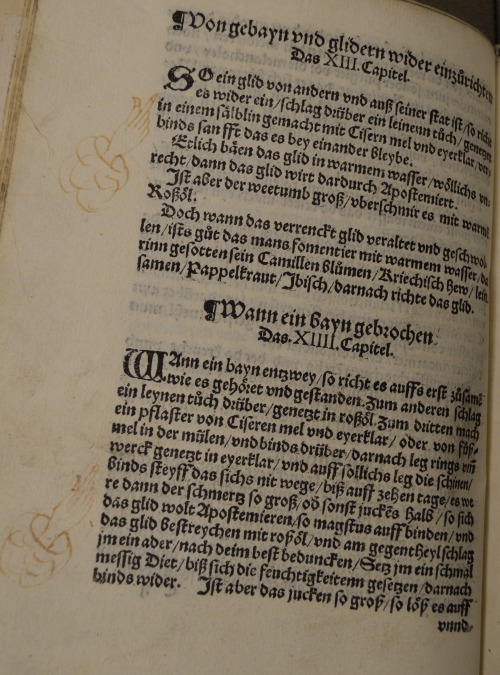 ¶Von gebayn vnd glidern wider einzůrichten
Das XIII. Capitel.
SO ein glid von andern vnd auß seiner stat ist / so richt
es wider ein / schlag drüber ein leinenn tůch / genetzt
in einem sälblin gemacht mit Cisern mel vnd eyerklar / ver
binds sanfft das es bey einander bleybe.
Etlich bäen das glid in warmem wasser / wöllichs vn
recht / dann das glid wirt dardurch Apostemiert.
Ist aber der weetumb groß / vberschmir es mit warmē
Roßöl.
Doch wann das verrenckt glid veraltet vnd geschwol
len / ists gůt das mans fomentier mit warmem wasser / da
rinn gesotten sein Camillen blůmen / Kriechisch hew / lein
samen / Pappelkraut / Ibisch / darnach richte das glid.
¶Wann ein bayn gebrochen
Das. XIIII. Capitel.
WAnn ein bayn entzwey / so richt es auffs erst zůsamē
wie es gehöret vnd gestanden. Zum anderen schlag
ein leynen tůch drüber / genetzt in roßöl. Zum dritten mach
ein pflaster von Ciseren mel vnd eyerklar / oder von
mel in der mülen / vnd binds drüber / darnach leg rings vm̄
werck genetzt in eyerklar / vnd auff söllichs leg die schinen /
binds steyff das sichs nit wege / biß auff zehen tage / es we
re dann der schmertz so groß / od̄ sonst juckēs halb / so sich
das glid wolt Apostemieren / so magstus auff binden / vnd
das glid bestreychen mit roßöl / vnd am gegentheyl schlag
jm ein ader / nach deim best beduncken / Setz jm ein schmal
messig Diet / biß sich die feuchtigkeitenn gesetzen / darnach
binds wider. Ist aber das jucken so groß / so löß es auff
vnnd